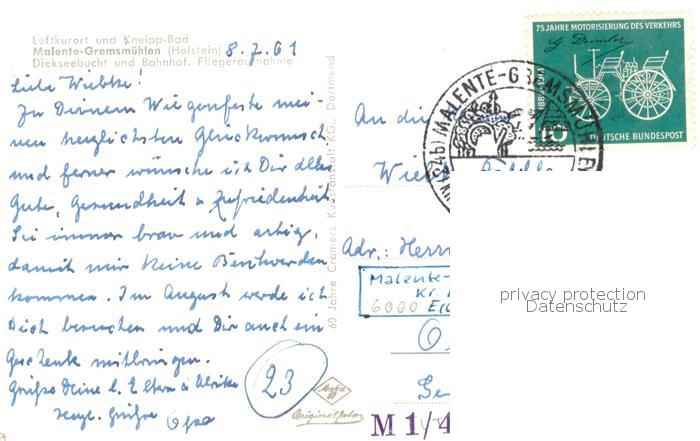 Luftkurort und Kneipp-Bad
Malente-Gremsmühlen (Holstein)
Diekseebucht und Bahnhof. Fliegeraufnahme
8.7.61
Liebe Wiebke!
Zu Deinem Wiegenfeste mei-
nen herzlichsten Glückwunsch
und ferner wünsche ich Dir alles
Gute, Gesundheit & Zufriedenheit
Sei immer brav und artig,
damit mir keine Beschwerden
kommen. Im August werde ich
Dich besuchen und Dir auch ein
Geschenk mitbringen.
Grüße Deine l. Eltern & Ulrike
Herzl. Grüße Opa
23
60 Jahre Cramers Kunstanstalt KG., Dortmund
Agfa
An die
Adr.: Herrn
Malente-
Kr.
6000
M 1/4
MALENTE-GREMSMÜHLEN
(24b)
75 JAHRE MOTORISIERUNG DES VERKEHRS
G. Daimler
10
DEUTSCHE BUNDESPOST
privacy protection
Datenschutz